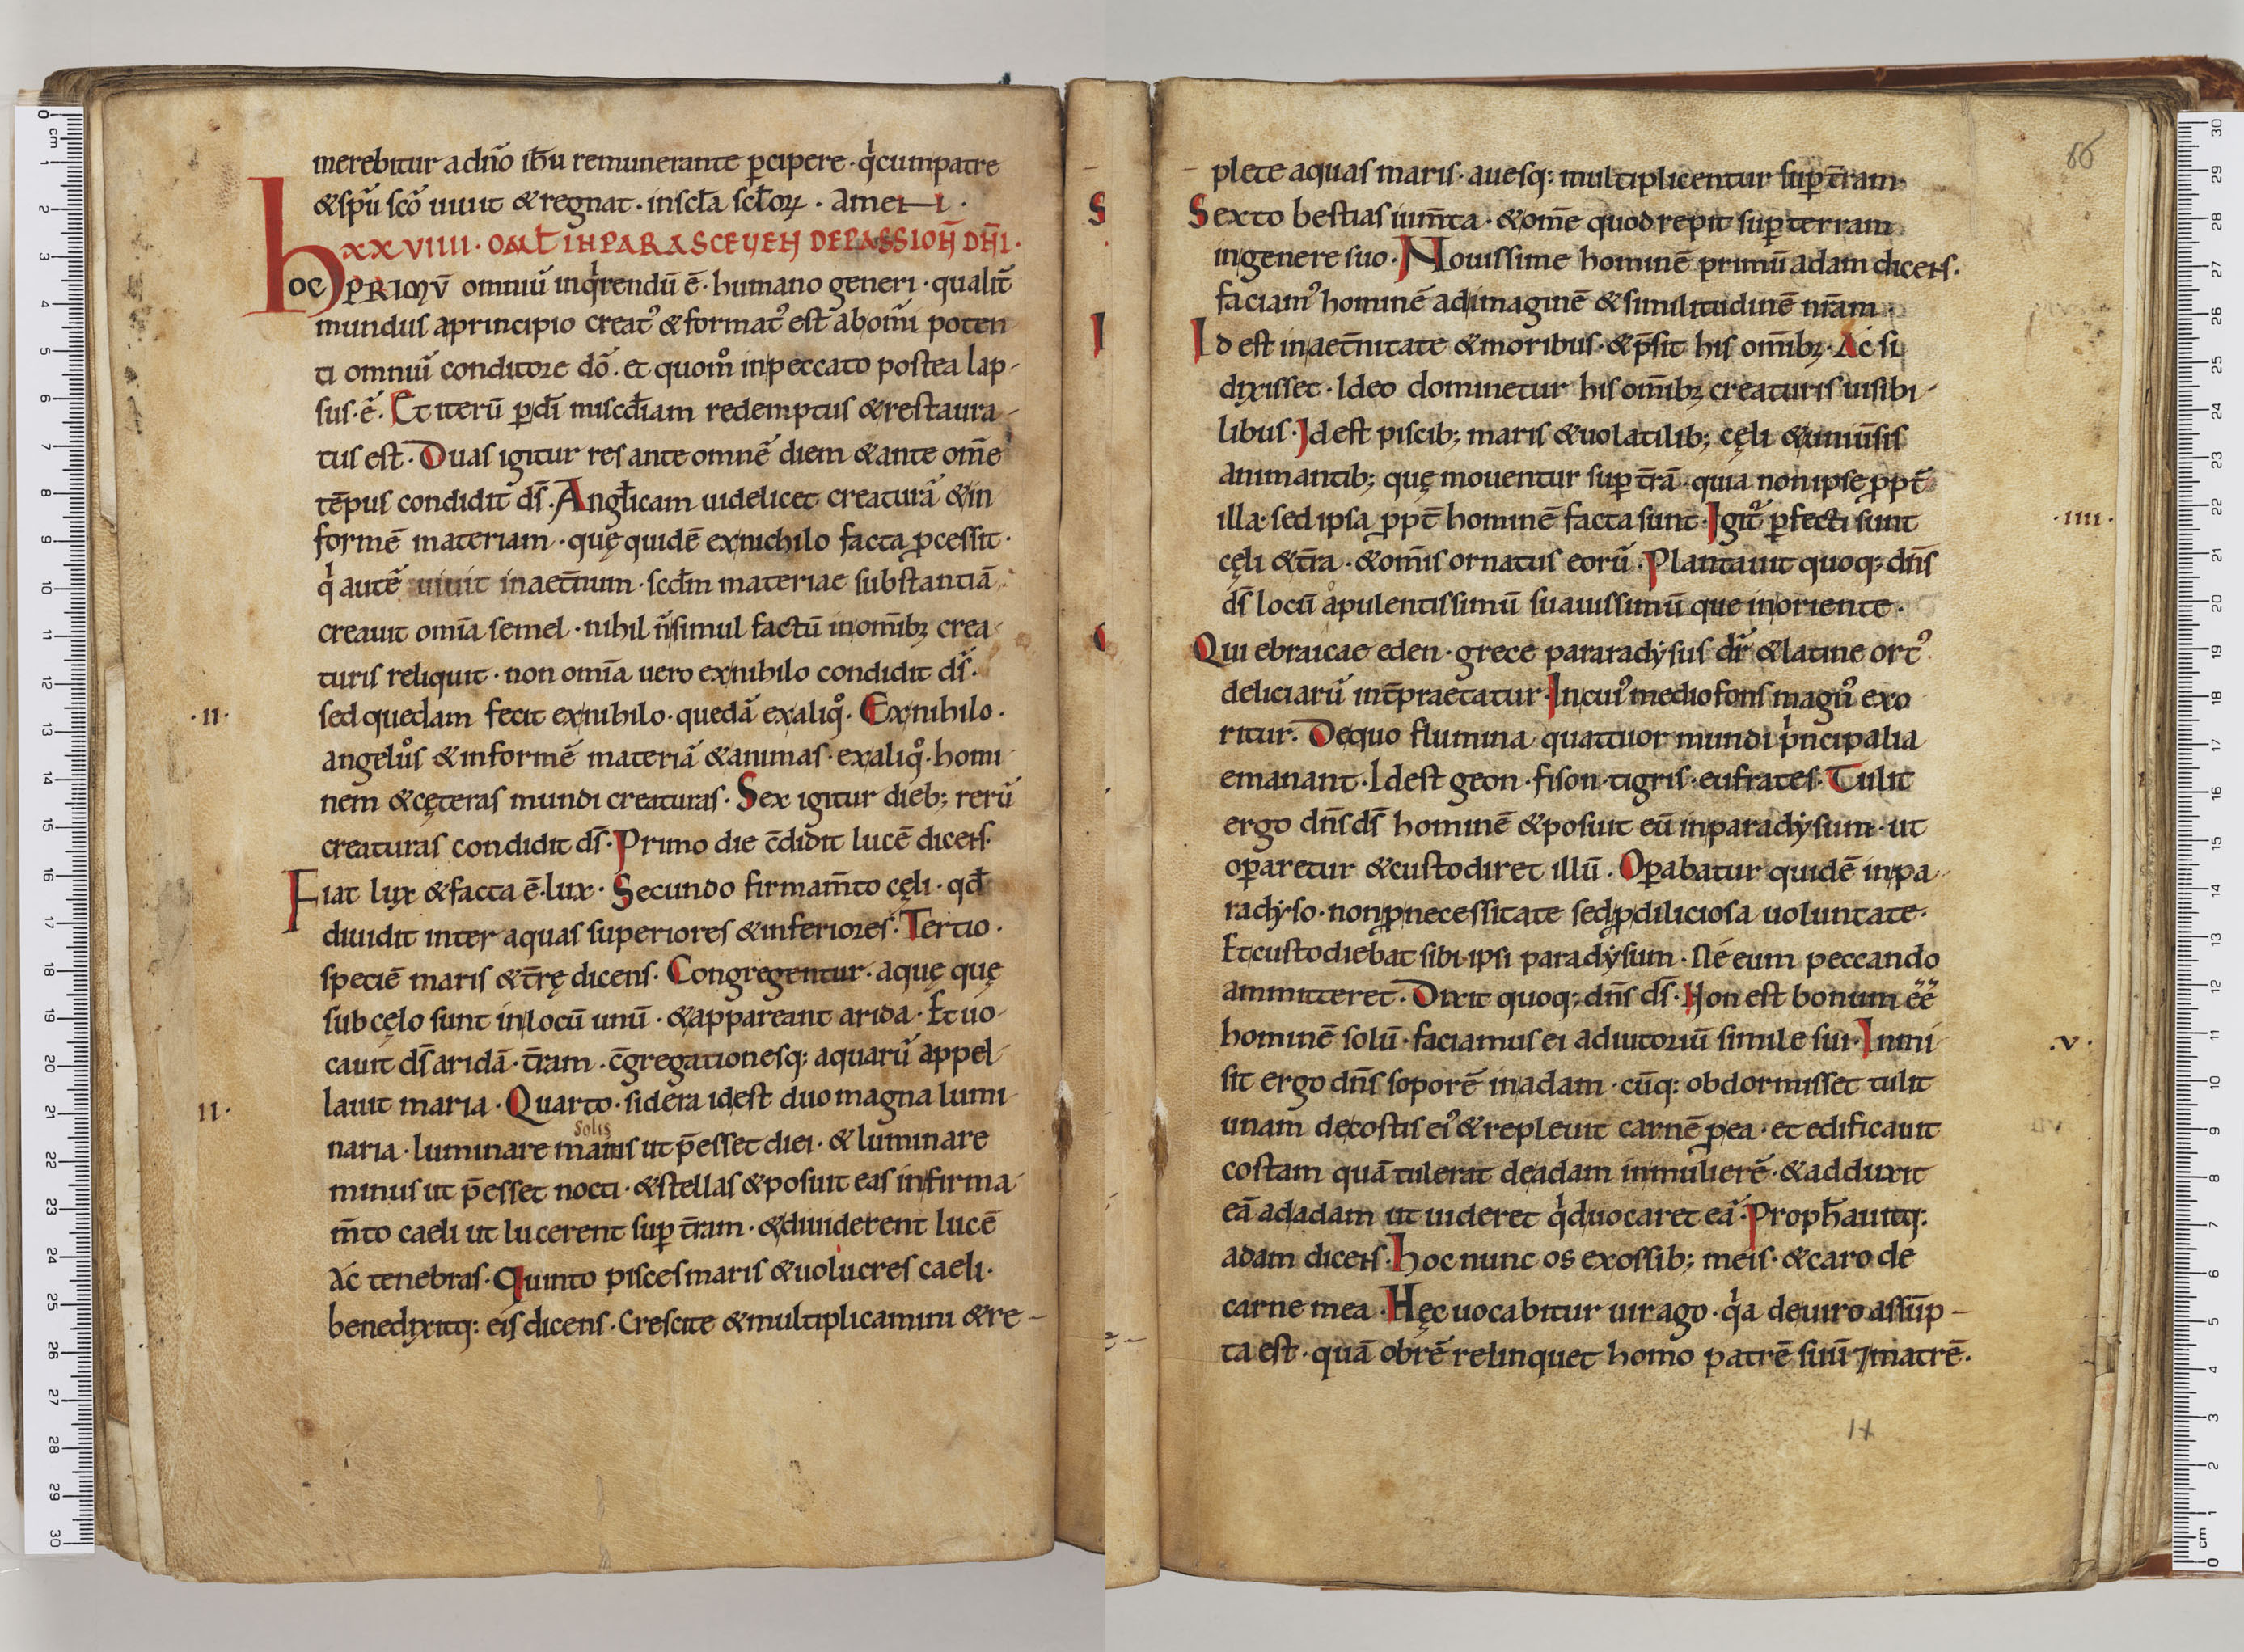 merebitur adño ihu remunerante ꝑcipere · q̍cumpatre
&spū sc̄o uiuit &regnat · insc̄la sc̄loꝝ · amen ·
XXVIIII · OMEL IN PARASCEUEN DE PASSIOÑ DÑI ·
hoc PRIMŪ omniū inq̍rendū ē · humano generi · qualit̄
mundus aprincipio creatꝰ &formatꝰ est abom̄i poten
ti omniū conditore dō · et quom̊ inpeccato postea lap-
sus · ē · Et iterū ꝑdī misc̄diam redemptus &restaura-
tus est · Duas igitur res ante omnē diem &ante om̄e
tēpus condidit dš · Anglicam uidelicet creaturā &in
formē materiam · quę quidē exnichilo facta ꝓcessit ·
q̍ autē uiuit inaet̄num · scd̄m materiae substantiā ·
creauit om̄ia semel · nihil n̄simul factū inom̄ibꝫ crea-
turis reliquit · non om̄ia uero exnihilo condidit dš ·
· II ·
sed quedam fecit exnihilo · quedā exaliq̊ · Exnihilo ·
angelůs &informē materiā &animas · exaliq̊ · homi-
nem &cęteras mundi creaturas · Sex igitur dieb; rerū
creaturas condidit dš · Primo die c̄didit lucē dicens ·
Fiat lux &facta ē · lux · Secundo firmam̄to cęli · qđ
diuidit inter aquas superiores &inferiores · Tertio ·
speciē maris &t̄rę dicens · Congregentur · aquę quę
sub cęlo sunt inlocū unū · &appareant arida · Et uo-
cauit dš aridā · t̄ram · c̄gregationesq; aquarū appel-
II ·
lauit maria · Quarto · sidera idest duo magna lumi-
solis
naria · luminare maius ut p̄esset diei · &luminare
minus ut p̄esset nocti · &stellas &posuit eas infirma-
m̄to caeli ut lucerent suꝑ t̄ram · &diuiderent lucē
Ac tenebras · Quinto pisces maris &uolucres caeli ·
benedixitq; eis dicens · Crescite &multiplicamini &re-
86
plete aquas maris · auesq; multiplicentur suꝑt̄ram ·
Sexto bestias ium̄ta · &om̄e quod repit suꝑterram
ingenere suo · Nouissime hominē primū adam dicens ·
faciamꝰ hominē adimaginē &similitudinē nr̄am ·
Id est inaet̄nitate &moribus · &p̄sit his om̄ibꝫ · Ac si
dixisset · Ideo dominetur his om̄ibꝫ creaturis uisibi-
libus · Idest piscib; maris &uolatilib; cęli &uniūsis
animantib; quę mouentur suꝑ t̄rā · quia non ipse ꝓpt̄
illa · sed ipsa ꝓpt̄ hominē facta sunt · Igit̊ ꝑfecti sunt
· IIII ·
cęli &t̄ra · &om̄is ornatus eorū · Plantauit quoq; dñs
dš locū åpulentissimū suauissimū que inoriente ·
Qui ebraicae eden · grece pararadysus dr̄ &latine ort̉
deliciarū int̄praetatur · Incuiꝰ medio fons magnꝰ exo
ritur · Dequo flumina quattuor mundi p̍ncipalia
emanant · Idest geon · fison · tigris · eufrates · Tulit
ergo dñs dš hominē &posuit eū inparadysum · ut
oꝑaretur &custodiret illū · Oꝑabatur quidē inpa-
radyso · non ꝓnecessitate sed ꝓdiliciosa uoluntate ·
Etcustodiebat sibi · ipsi paradysum · Né eum peccando
ammitteret · Dixit quoq; dñs dš · Non est bonum ēē
hominē solū · faciamus ei adiutoriū simile sui · Inmi-
· V ·
sit ergo dñs soporē inadam · cūq; obdormisset tulit
unam decostis eiꝰ &repleuit carnē ꝓea · et edificauit
costam quā tulerat deadam inmulierē · &adduxit
eā adadam ut uideret q̍duocaret eā · Proph̄auitq;
adam dicens · hoc nunc os exossib; meis · &caro de
carne mea · Hęc uocabitur uirago · q̍a deuiro assūp-
ta est · quā obrē relinquet homo patrē suū ⁊matrē ·